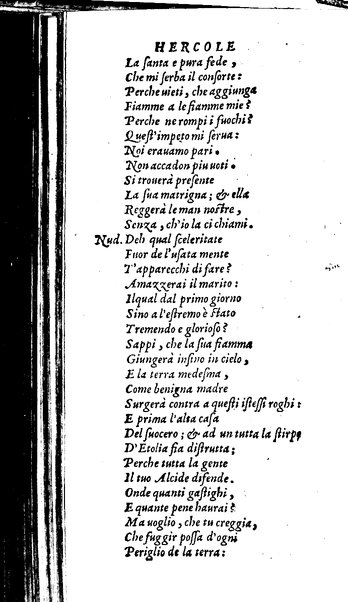 HERCOLE
La ſanta e pura fede,
Che mi ſerba il conſorte:
Perche uieti, che aggiunga
Fiamme a le fiamme mie?
Perche ne rompi i fuochi?
Queſt'impeto mi ſerua:
Noi erauamo pari.
Non accadon piu uoti.
Si trouerà preſente
La ſua matrigna; & ella
Reggerà le man noſtre,
Senza, ch'io la ci chiami.
Nud. Deh qual ſceleritate
Fuor de l'uſata mente
T'apparecchi di fare?
Amazzerai il marito:
Ilqual dal primo giorno
Sino a l'eſtremo è ſtato
Tremendo e glorioſo?
Sappi, che la ſua fiamma
Giungerà inſino in cielo,
E la terra medeſma,
Come benigna madre
Surgerà contra a queſti iſteſſi roghi:
E prima l'alta caſa
Del ſuocero; & ad un tutta la ſtirpe
D'Etolia fia diſtrutta;
Perche tutta la gente
Il tuo Alcide difende.
Onde quanti gaſtighi,
E quante pene haurai?
Ma uoglio, che tu creggia,
Che fuggir poſſa d'ogni
Periglio de la terra: